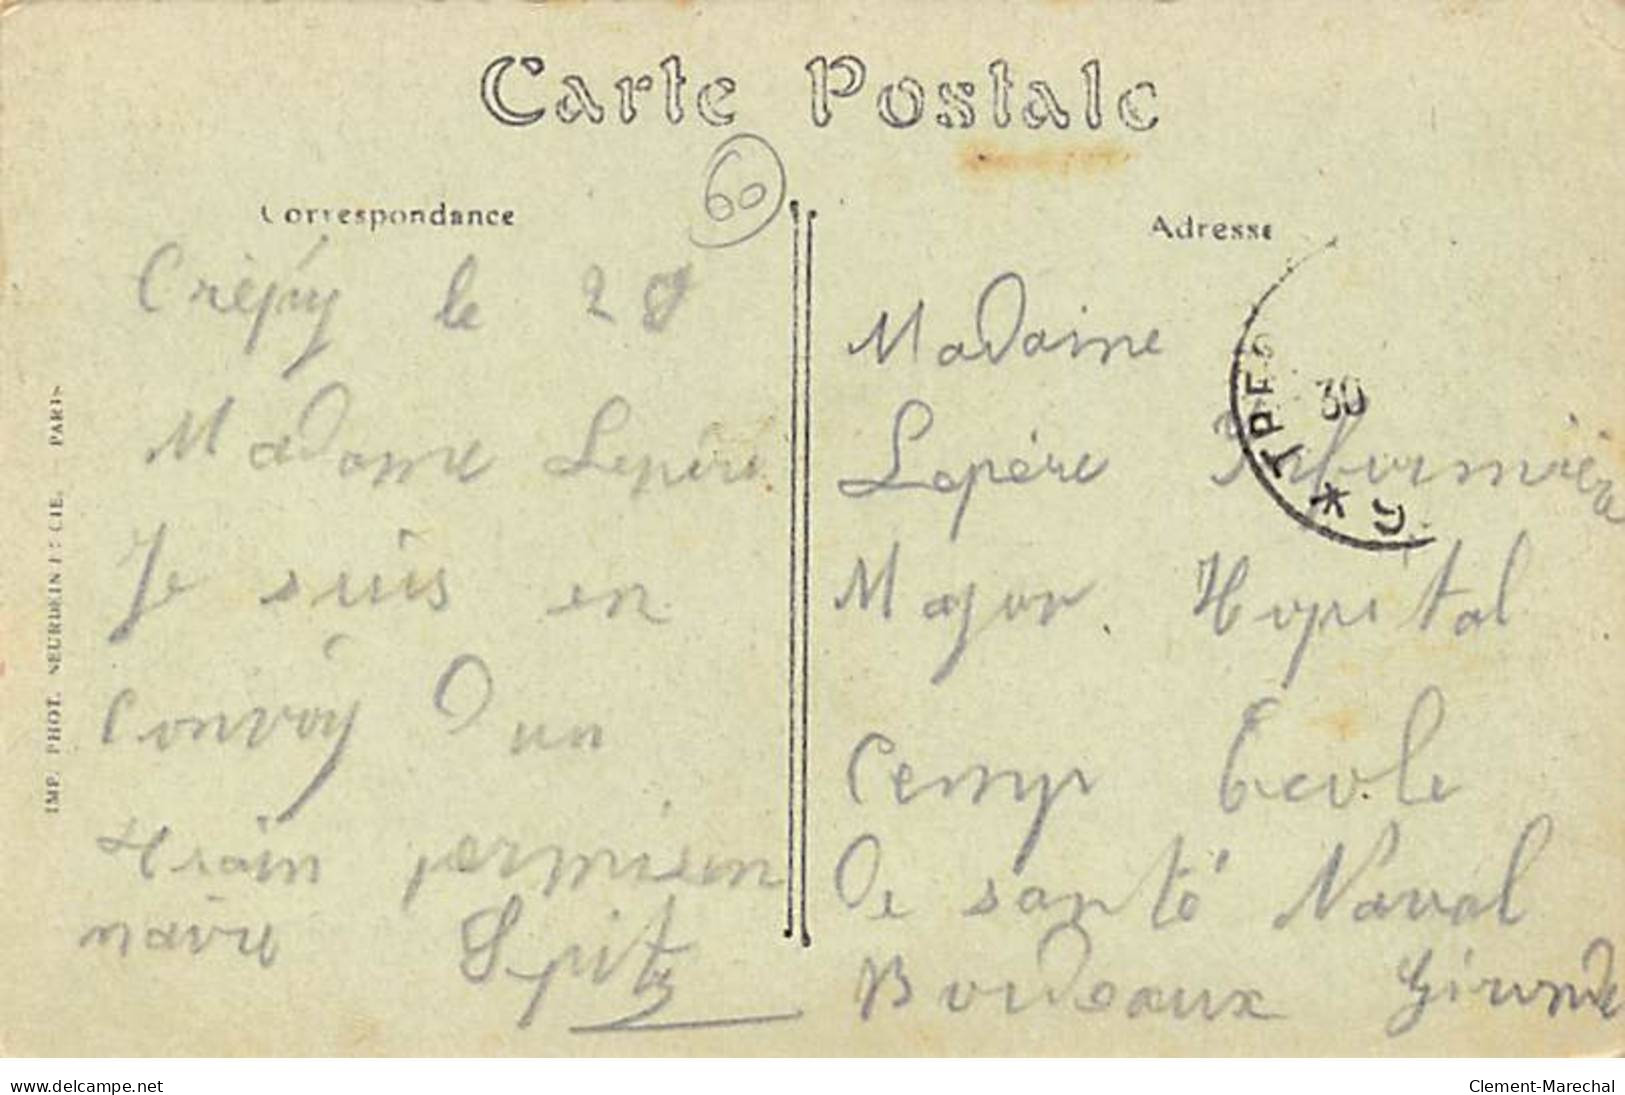 Carte Postale
60
Correspondance
Crépy le 28
Madame Lepère
Je suis en
convoy d un
train permision
naire Spitz
Adresse
Madame
Lepère Infirmièra
Major Hopital
Cemp Ecole
de santé Naval
Bordeaux Gironde
30
IMP. PHOT. NEURDEIN ET CIE. - PARIS
www.delcampe.net
Clement-Marechal